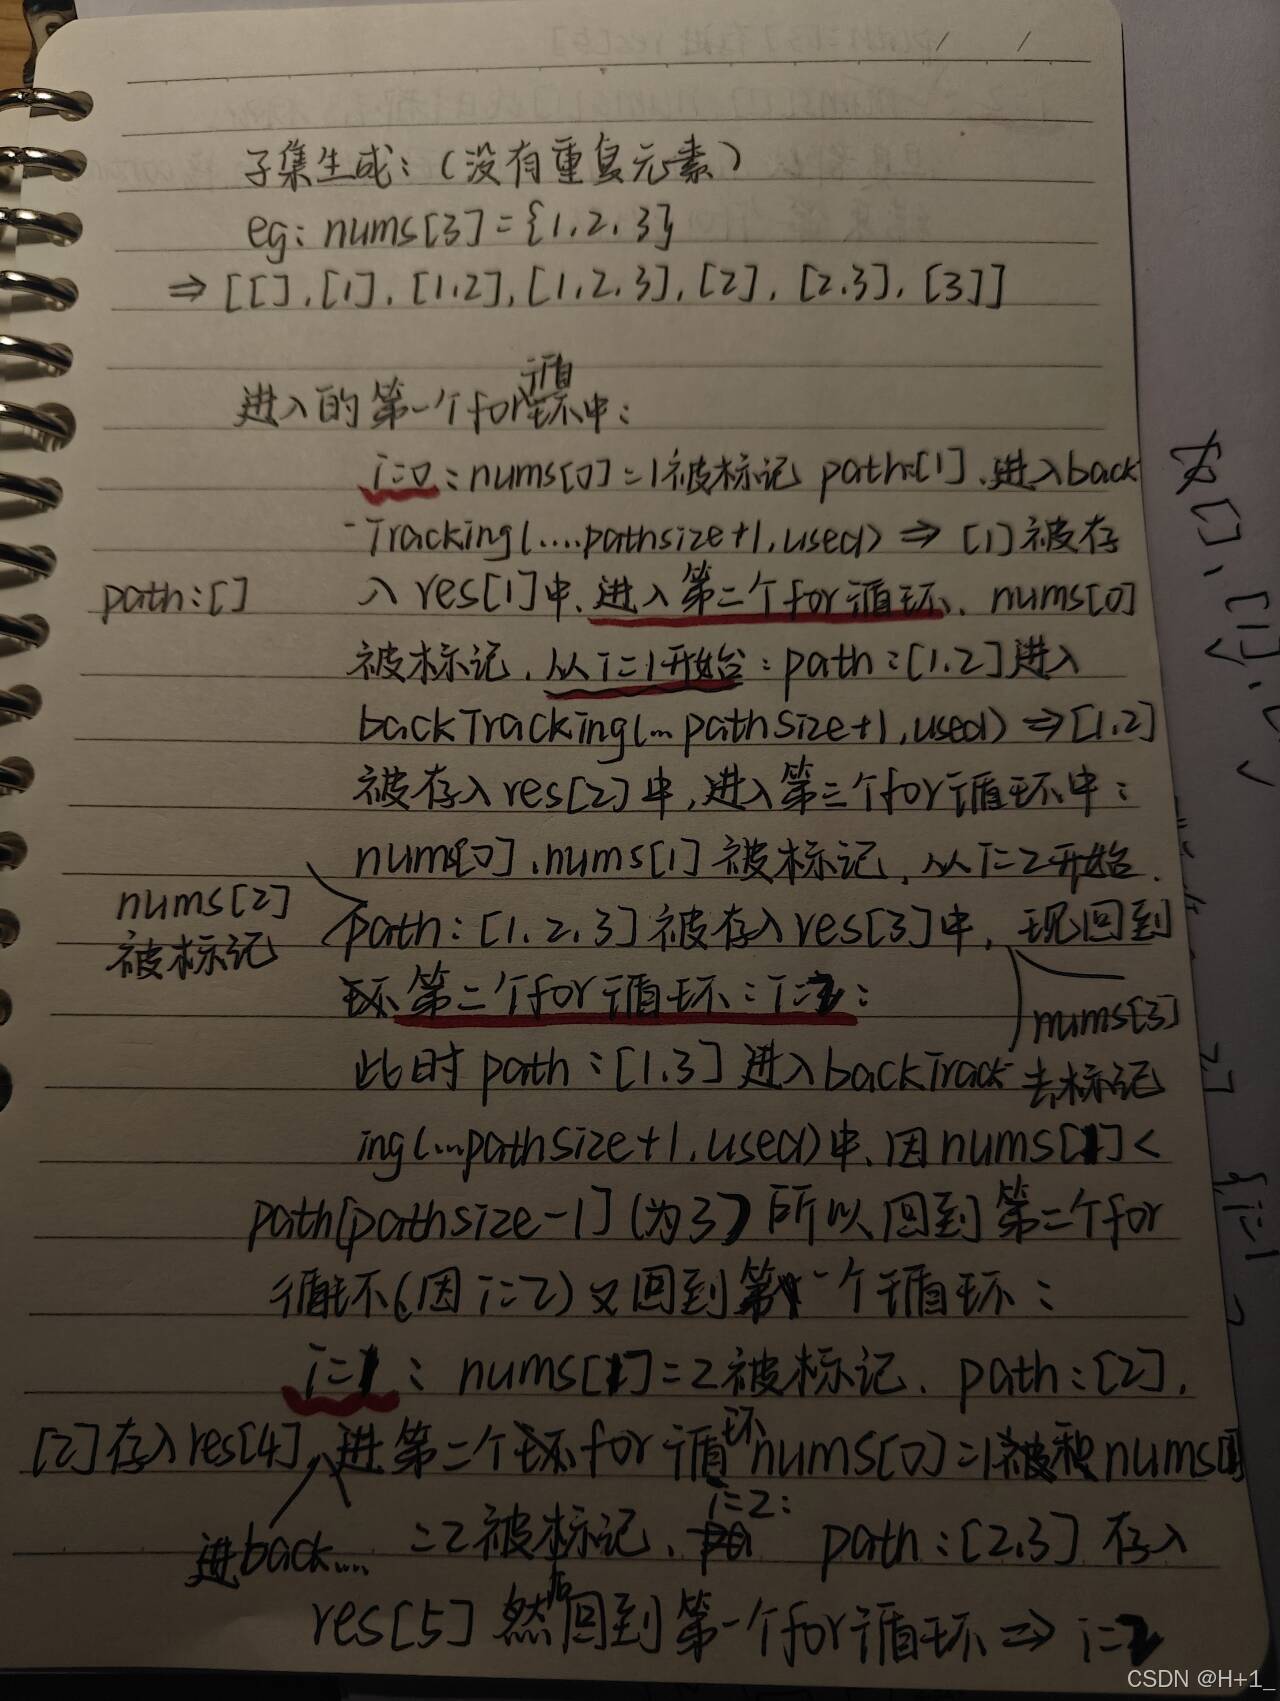 子集生成:(没有重复元素)
eg: nums[3]={1,2,3}
⇒ [[],[1],[1,2],[1,2,3],[2],[2,3],[3]]
进入的第一个for循环中:
i=0:nums[0]=1被标记 path:[1],进入back
-Tracking(....pathsize+1,used) ⇒ [1]被存
path:[]
入res[1]中,进入第二个for循环,nums[0]
被标记,从i=1开始:path:[1,2]进入
backTracking(...pathsize+1,used) ⇒[1,2]
被存入res[2]中,进入第三个for循环中:
nums[0],nums[1]被标记,从i=2开始,
nums[2]
被标记
path:[1,2,3]被存入res[3]中,现回到
环第二个for循环:i=2:
nums[3]
去标记
此时path:[1,3]进入backTrack
ing(...pathsize+1,used)中,因nums[1]<
path[pathsize-1](为3)所以回到第二个for
循环(因i=2)又回到第一个循环:
i=1:nums[1]=2被标记,path:[2],
[2]存入res[4],进第二个环for循环nums[0]=1被 nums[1]
进back....
=2被标记,i=2: path:[2,3]存入
res[5]然后回到第一个for循环⇒i=2
[],[1],
2,]
{i=1
CSDN @H+1_